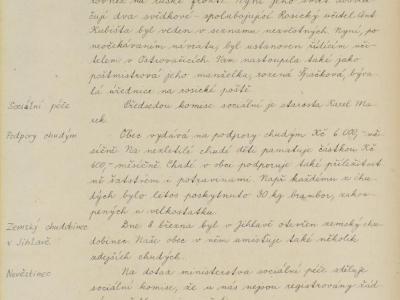 rovněž na ruské frontě. Nyní jeho
čují dva svědkové - spolubojující Rosický učitel Ant.
Kubišta byl veden v seznamu nezvěstných. Nyní, po
neočekávaném návratu, byl ustanoven řídícím uči-
telem v Ostrovačicích. Tam nastoupila také jako
poštmistrová jeho manželka, rozená Špačková, býva-
lá úřednice na rosické poště.
Sociální péče Předsedou komise sociální je starosta Karel Ma-
rek.
Podpory chudým Obec vydává na podpory chudým Kč 6 000,- mě-
síčně. Na nezletilé chudé děti pamatuje částkou Kč
400,- měsíčně. Chudé v obci podporuje také příležitost-
ně šatstvem i potravinami. Např. každému z chu-
dých bylo letos poskytnuto 30 kg brambor, zakou-
pených u velkostatku.
Zemský chudobinec Dne 8. března byl v Jihlavě otevřen zemský chu-
v Jihlavě dobinec. Naše obec v něm umístuje také několik
zdejších chudých.
Nevěstinec Na dotaz ministerstva sociální péče sděluje
sociální komise, že u nás nejsou registrovány žád-